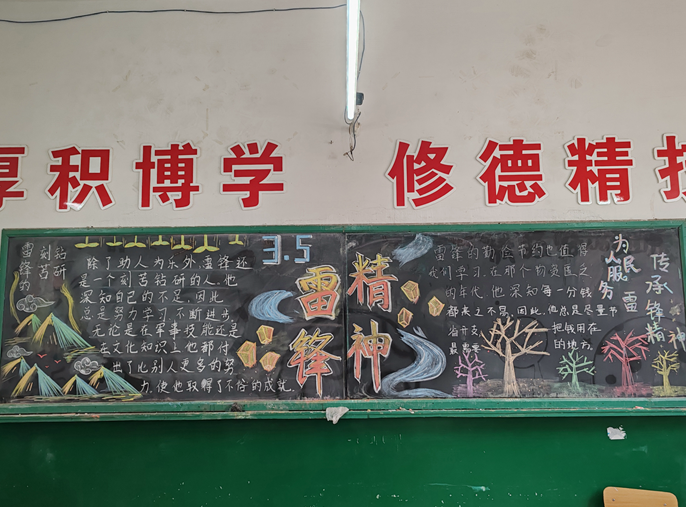 厚积博学 修德精技
雷锋的
刻苦
钻研
除了助人为乐外,雷锋还
是一个刻苦钻研的人,他
深知自己的不足,因此
总是努力学习,不断进步
无论是在军事技能还是
在文化知识上他都付
出了比别人更多的努
力,使他取得了不俗的成就.
3.5
雷锋
精神
雷锋的勤俭节约也值得
我们学习,在那个物资匮乏
的年代,他深知每一分钱
都来之不容,因此,他总是尽量节
把钱用在
的地方.
为人民服务
传承雷锋精神